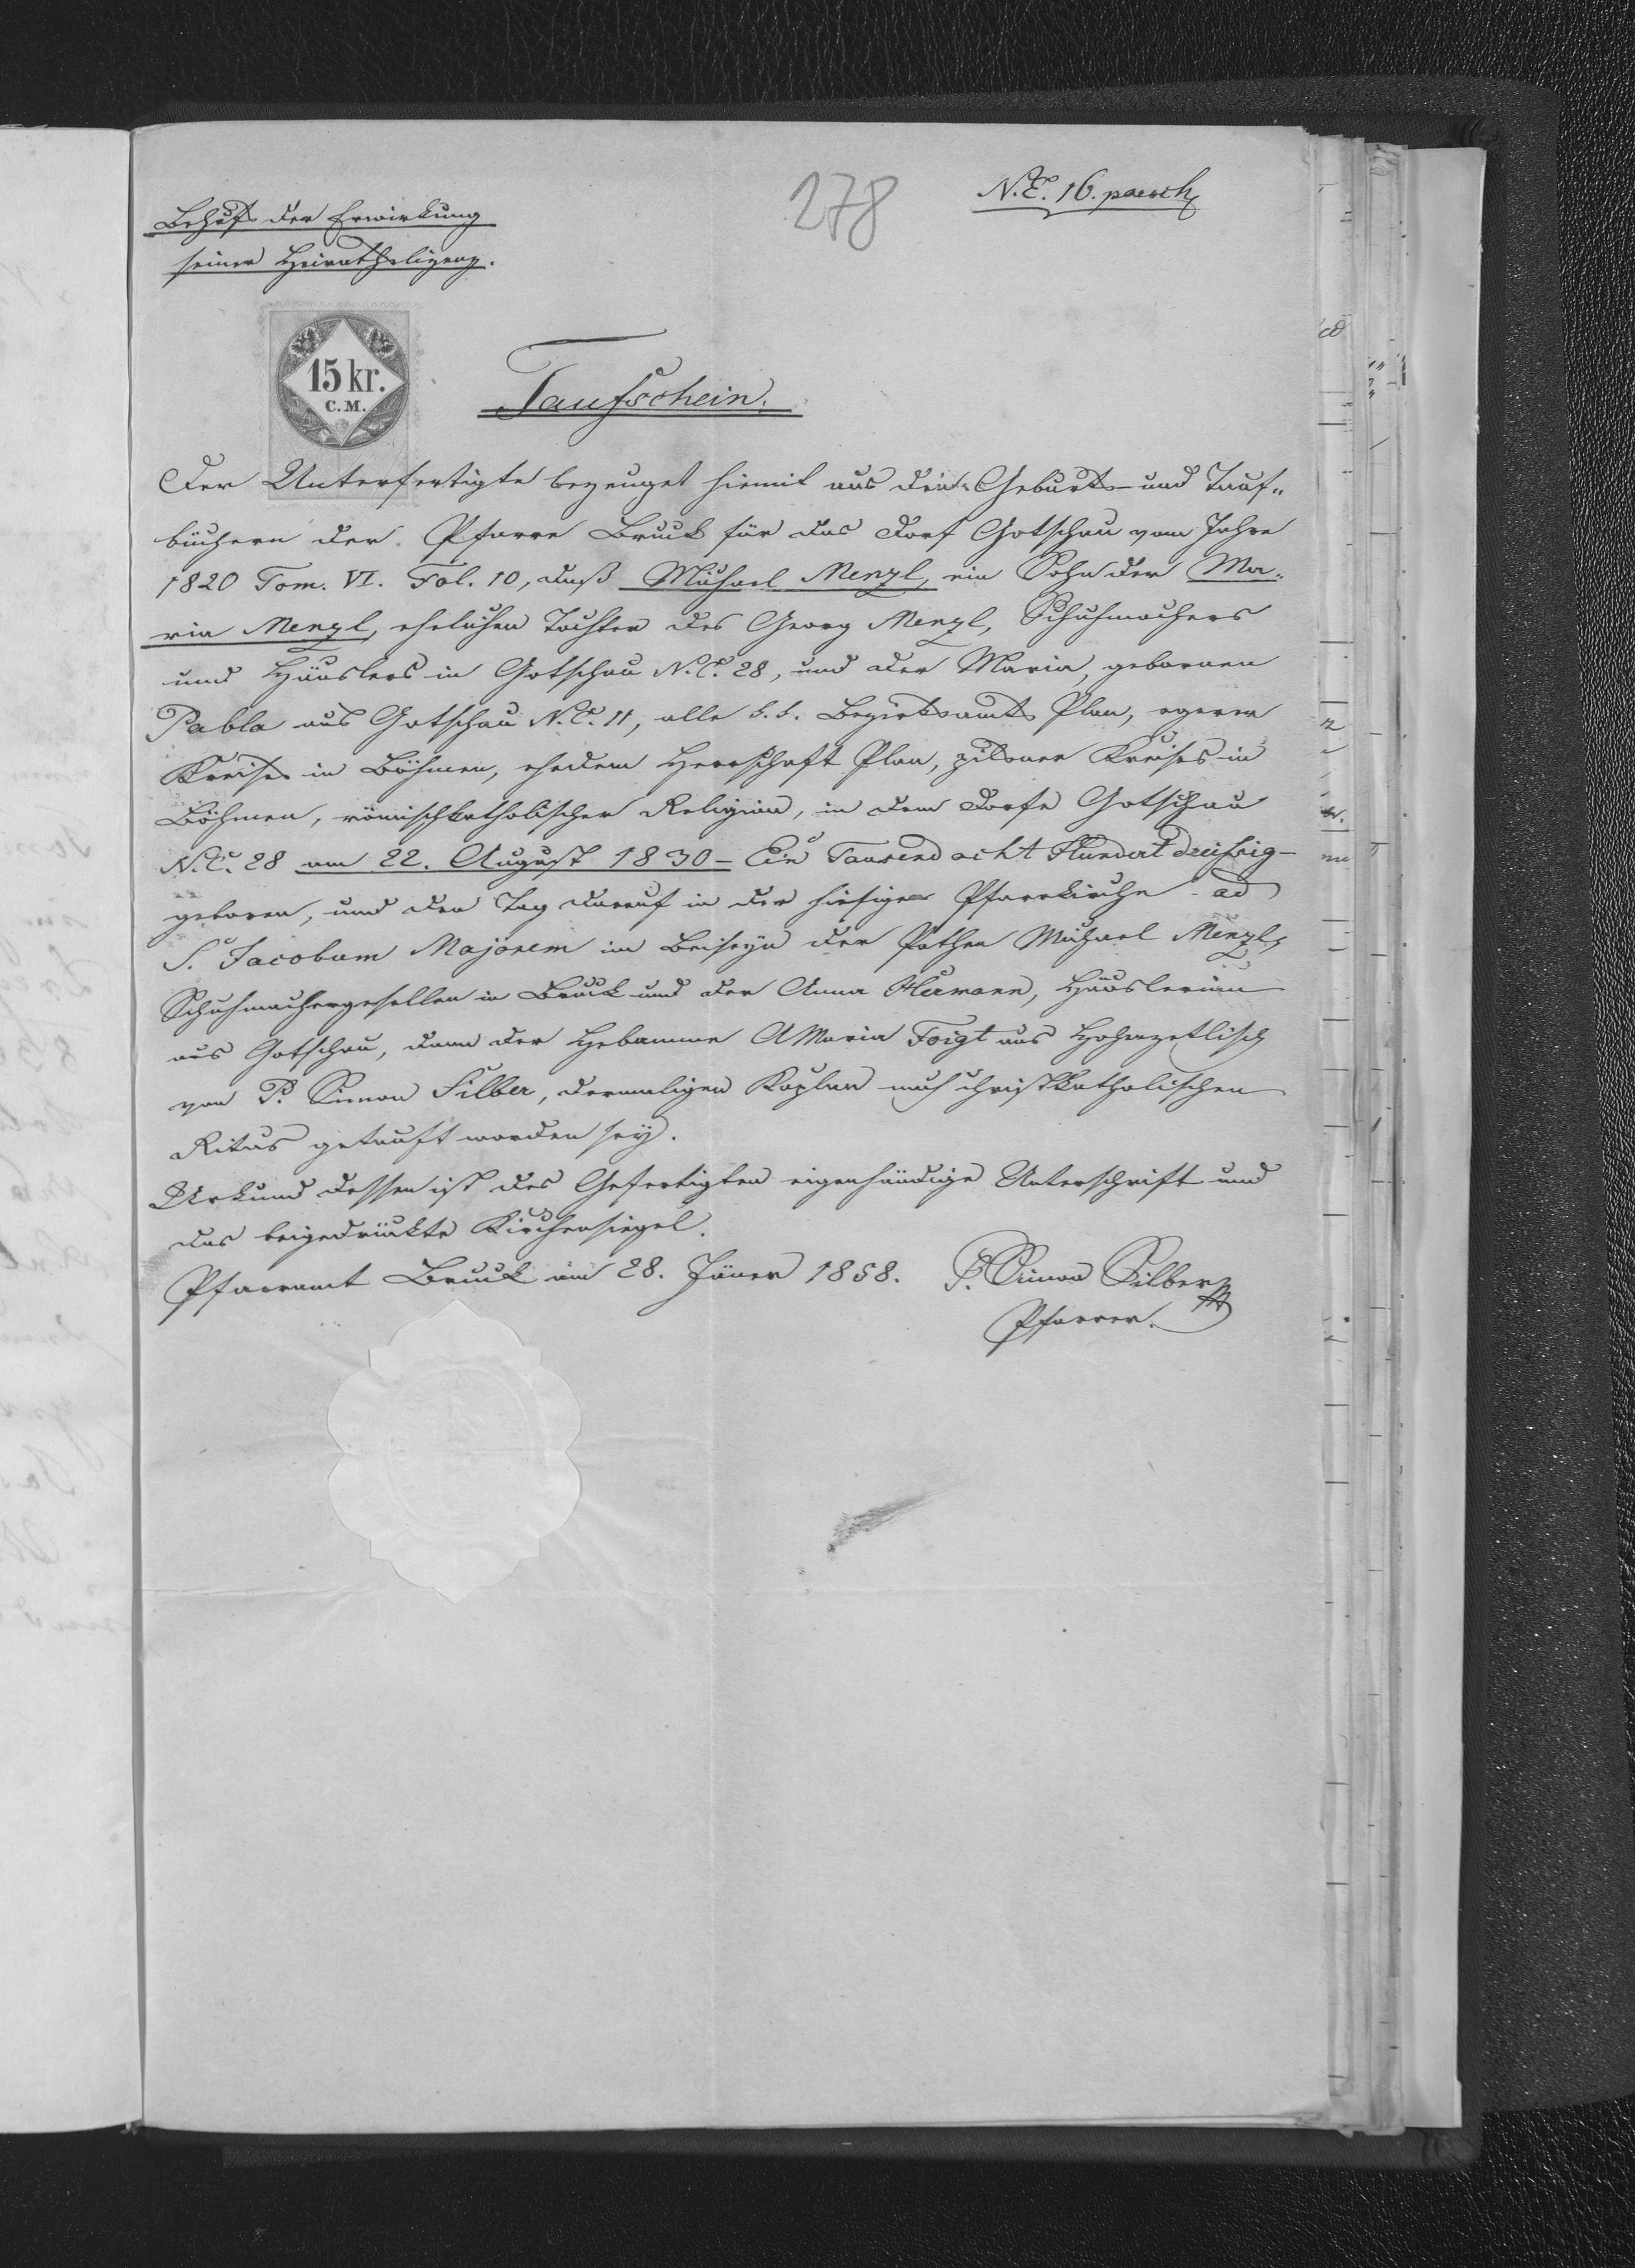 278
N.E. 16. paroch
Behufs der Erwirkung
seiner Heiratsligenz.
15 kr.
C.M.
Taufschein.
Der Unterfertigte bezeuget hiemit aus den Geburts- und Tauf-
büchern der Pfarre Bruck für das Dorf Gotschau vom Jahre
1820 Tom. VI. Fol. 10, daß Michael Menzl, ein Sohn der Ma-
ria Menzl, ehelichen Tochter des Georg Menzl, Schuhmachers
und Häuslers in Gotschau N.C. 28, und der Maria, gebornen
Pabla aus Gotschau N.C. 11, alle k.k. Bezirksamts Plan, egerer
Kreises in Böhmen, ehedem Herrschaft Plan, pilsner Kreises in
Böhmen, römischkatholischer Religion, in dem Dorfe Gotschau
N.C. 28 am 22. August 1830 - Ein Tausend acht Hundert dreißig -
geboren, und den Tag darauf in der hiesigen Pfarrkirche ad
S. Jacobum Majorem im Beiseyn der Pathen Michael Menzl,
Schuhmachergesellen in Bruck und der Anna Hermann, Häuslerinn
aus Gotschau, dann der Hebamme AMaria Foigt aus Hohenzetlisch
von P. Simon Silber, dermaligen Kaplan nach christkatholischen
Ritus getauft worden sey.
Urkund dessen ist des Gefertigten eigenhändige Unterschrift und
das beigedrückte Kirchensiegel.
Pfarramt Bruck am 28. Jäner 1858. P. Simon Silber
Pfarrer.